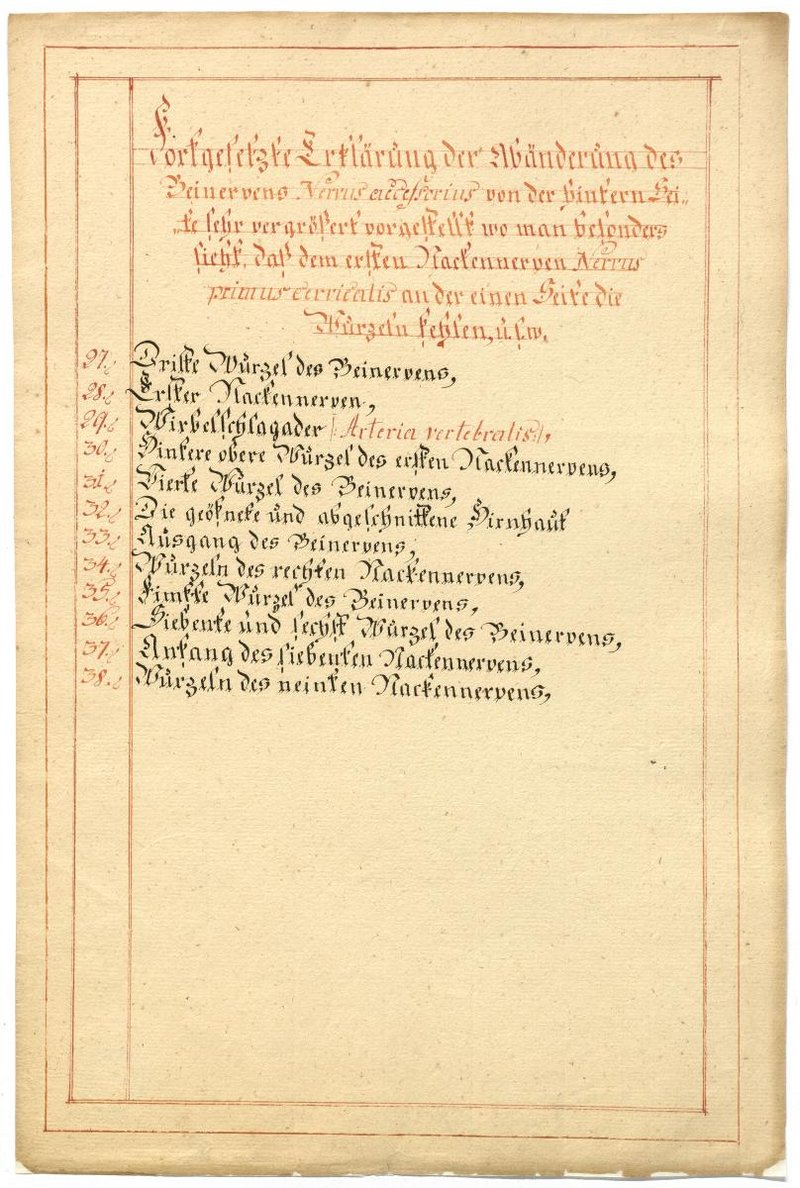 Fortgesetzte Erklärung der Wänderung des
Beinervens Nervus accessorius von der hintern Sei„
„te sehr vergrößert vorgestellt wo man besonders
sieht, daß dem ersten Nackennerven Nervus
primus cervicalis an der einen Seite die
Würzeln fehlen, ü.s.w.
27. Dritte Würzel des Beinervens,
28. Erster Nackennerven,
29. Wirbelschlagader /: Arteria vertebralis :/,
30. Hintere obere Würzel des ersten Nackennervens,
31. Vierte Würzel des Beinervens,
32. Die geöfnete ünd abgeschnittene Hirnhaut
33. Aüsgang des Beinervens,
34. Würzeln des rechten Nackennervens,
35. Fünfte Würzel des Beinervens,
36. Siebente ünd sechst Würzel des Beinervens,
37. Anfang des siebenten Nackennervens,
38. Würzeln des neünten Nackennervens,